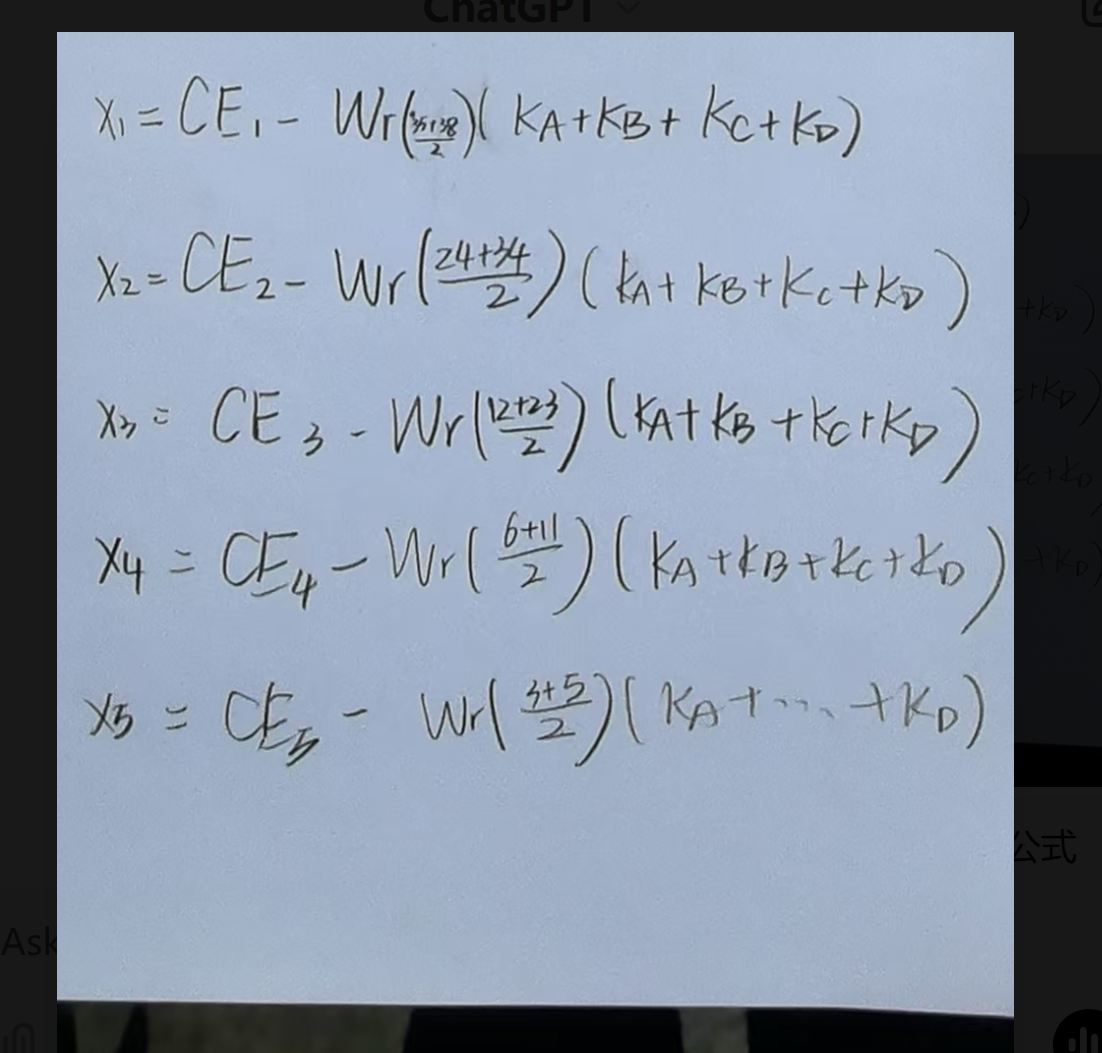 ChatGPT
X₁ = CE₁ - Wr((35+38)/2)(KA+KB+KC+KD)
X₂ = CE₂ - Wr((24+34)/2)(KA+KB+KC+KD)
X₃ = CE₃ - Wr((12+23)/2)(KA+KB+KC+KD)
X₄ = CE₄ - Wr((6+11)/2)(KA+KB+KC+KD)
X₅ = CE₅ - Wr((3+5)/2)(KA+...+KD)
公式
Ask